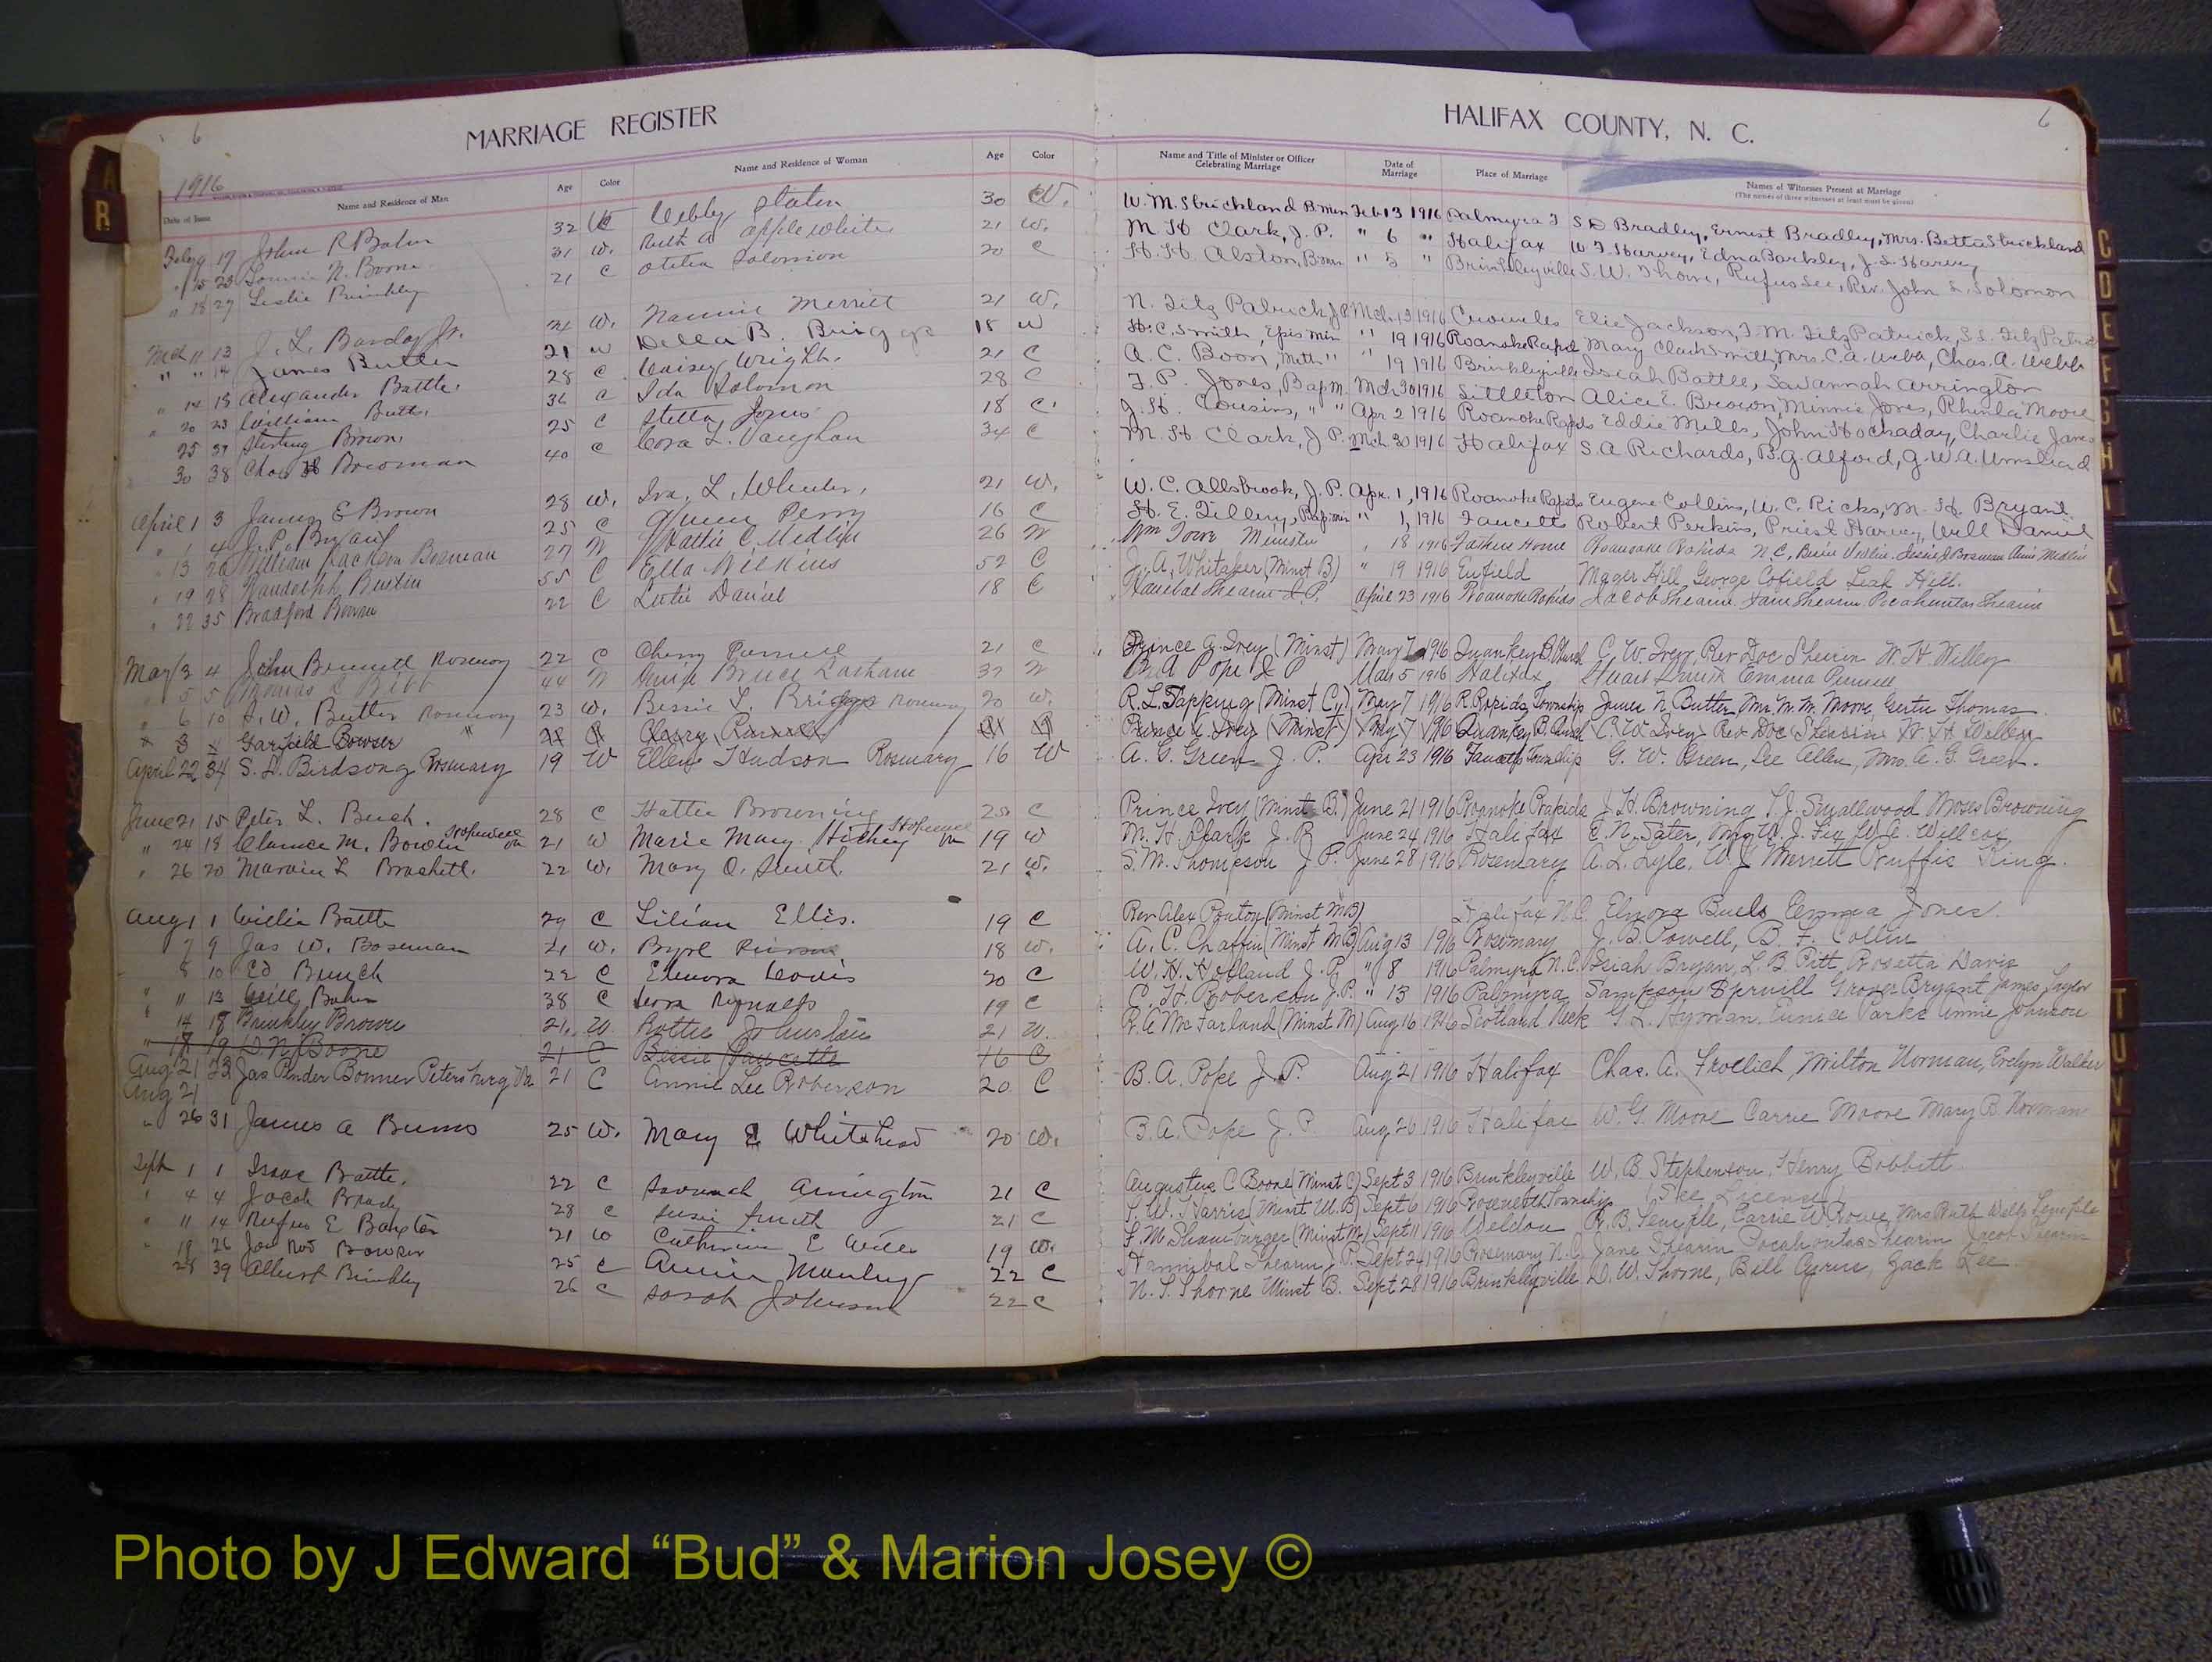 6
MARRIAGE REGISTER
1916
Date of Issue Name and Residence of Man Age Color Name and Residence of Woman Age Color
Feby 9 17 John R Baker 32 W Staton 30 W.
15 23 N. Boone 31 W. Ruth a applewhite 21 W.
" 18 27 Leslie Brinkley 21 C Solomon 20 C
Mch 11 13 J. L. Jr. W. Nannie Merritt 21 W.
" " 14 James Butler 21 W Della B. 18 W
" 14 18 Alexander Battle. 28 C Daisey Wright. 21 C
" 20 23 William C Ida Solomon 28 C
25 37 Sterling Brown. 25 C Stella Jones 18 C.
30 38 Chas H Bowman 40 C Cora L. Vaughan 34 C
April 1 3 James E Brown 28 W. Iva. L. Wheeler. 21 W.
" 1 4 J. P. Bryant 25 C Queen Perry 16 C
" 13 20 William Jackson Boseman 27 W Hattie C. Medlin 26 W
" 19 28 Randolph Burton 55 C Ella Wilkins 52 C
" 22 35 Bradford 22 C Lutie Daniel 18 C
May 3 4 John Bennett Rosemary 22 C Cherry Purnell 21 C
5 5 Thomas C Bibb 44 W Bruce Latham 37 W
" 6 10 J. W. Butler Rosemary 23 W. Bessie L. Bridges Rosemary 20 W.
3 Garfield Bowser " 21 C Cherry Purnell 21 C
April 22 34 S. D. Birdsong Rosemary 19 W Ellen Hudson Rosemary 16 W
June 21 15 Peter L. Buck. 28 C Hattie Browning C
" 24 18 Clarence M. Bowden Hopewell Va 21 W Marie Mary Hickey Hopewell Va 19 W
" 26 20 Marvin L 22 W. Mary O. Smith. 21 W.
Aug 1 1 Willie Battle 29 C Lilian Ellis. 19 C
7 9 Jas W. Boseman 21 W. Byrl Pierson 18 W.
8 10 Ed Bunch 22 C Elenora Lewis 20 C
" 11 13 Will Baker 38 C Leora Reynolds 19 C
" 14 18 Brinkley Brown 21. W. Johnston 21 W.
" 17 19 D. N. Boone 21 C Bessie Fawcette 16 C
Aug 21 23 Jas Pender Bonner Petersburg Va 21 C Annie Lee Roberson 20 C
Aug 21
" 26 31 James A Burns 25 W. Mary E Whitehead 20 W.
Sept 1 1 Isaac Battle. 22 C Savanah Arrington 21 C
" 4 4 Jacob Brady 28 C Susie Smith 21 C
" 11 14 Rufus E Baxter 21 W Catherine E 19 W.
" 19 26 Bowser 25 C Annie Manley 22 C
28 39 Albert Brinkley 26 C Sarah Johnson 22 C
HALIFAX COUNTY, N. C.
6
Name and Title of Minister or Officer Celebrating Marriage Date of Marriage Place of Marriage Names of Witnesses Present at Marriage
(The names of three witnesses at least must be given)
W. M. Strickland B. Min Feb 13 1916 Palmyra T S D Bradley, Ernest Bradley, Mrs. Betta Strickland
M H Clark, J. P. " 6 " Halifax W. F Harvey, Edna Barkley, J. S. Harvey
H. H. Alston, B " 5 " Brinkleyville S. W. Thorn, Rufus Lee, Rev. John L. Solomon
N. Fitz Patrick J.P. Mch. 1916 Elie Jackson, T. M. Fitz Patrick, S. L. Fitz Patrick
H. C. Smith, Epis Min " 19 1916 Roanoke Rapid Mary Clark Smith, Mrs. C. A. Webb, Chas. A. Webb
A. C. Boon, Meth " " 19 1916 Brinkleyville Isiah Battle, Savannah Arrington
T. P. Jones, Bap M. Mch 30 1916 Littleton Alice E. Brown, Minnie Jones, Rhinla Moore
J. H. Cousins, " " Apr 2 1916 Roanoke Rapds Eddie Mills, John Hockaday, Charlie Jones
M. H Clark, J P. Mch 30 1916 Halifax S. A. Richards, B. G. Alford, G. W. A. Umstead
W. C. Allsbrook, J. P. Apr. 1, 1916 Roanoke Rapids Eugene Collins, W. C. Ricks, M. H Bryant
H. E. Tillery, Bap. min " 1, 1916 Faucetts Robert Perkins, Priest Harvey, Will Daniel
Wm Towe Minister " 18 1916 Fathers Home Roanoake Rapids N C,
J. A. Whitaker (Minst B) " 19 1916 Enfield Mager Hill George Cofield Leah Hill.
Hanibal Shearin J. P. April 23 1916 Roanoke Rapids Jacob Shearin, Jane Shearin Pocahuntas Shearin
Prince A. Ivey (Minst) May 7 1916 Quankey B. Church C. W. Ivey, Rev Doc Shearin W. H. Willey
B A Pope J P May 5 1916 Halifax Stuart Smith Emma Purnell
R. L. Topping (Minst C) May 7 1916 R. Rapids Township James N Butler, Mrs. M. M. Moore, Gertie Thomas
Prince A. Ivey (Minst) May 7 1916 Quankey B. Church C. W. Ivey Rev Doc Shearin W. H. Willey
A. G. Green J. P. Apr 23 1916 Faucetts Township G. W. Green, Lee Allen, Mrs. A. G. Green.
Prince Ivey (Minst B.) June 21 1916 Roanoke Rapids J. H. Browning T. J. Smallwood Moses Browning
M. H. Clark J. P. June 24 1916 Halifax E. N. W. C. Willcox
S. M. Thompson J P. June 28 1916 Rosemary A. L. Lyle. W. J Merritt Ruffis King.
Rev Alex (Minst M B) Halifax N.C. Elnora Emma Jones.
A. C. Chaffin (Minst M B) Aug 13 1916 Rosemary J. B Powell, B. F. Collin
W. H. Holland J. P. " 8 1916 Palmyra N. C. Isiah Bryan, L. B. Pitt Rosetta Davis
C. H. Roberson J. P. " 13 1916 Palmyra Sampson Spruill Grover Bryant James Taylor
R. A. McFarland (Minst M) Aug 16 1916 Scotland Neck G. L. Hyman, Eunice Parks Annie Johnson
B. A. Pope J. P. Aug 21 1916 Halifax Chas. A. Froelich, Milton Norman, Evelyn Walker
B. A. Pope J. P. Aug 26 1916 Halifax W. G. Moore Carrie Moore Mary B. Norman
Augustus C Boone (Minst C) Sept 3 1916 Brinkleyville W. B. Stephenson, Henry Bobbitt
S. W. Harris (Minst M. B) Sept 6 1916 Roseneath Township (See License)
F. M. Shamburger (Minst M) Sept 11 1916 Weldon R. B. Semple, Carrie W Rowe, Mrs Ruth Wells Semple
Hannibal Shearin J P. Sept 24 1916 Rosemary N. C. Jane Shearin Pocahontas Shearin Jacob Shearin
N. T. Thorne Minst B. Sept 28 1916 Brinkleyville D. W. Thorne, Bill Jack Lee
B
C
D
E
F
G
H
I
K
L
M
Mc
T
U
N
W
Y
Photo by J Edward “Bud” & Marion Josey ©